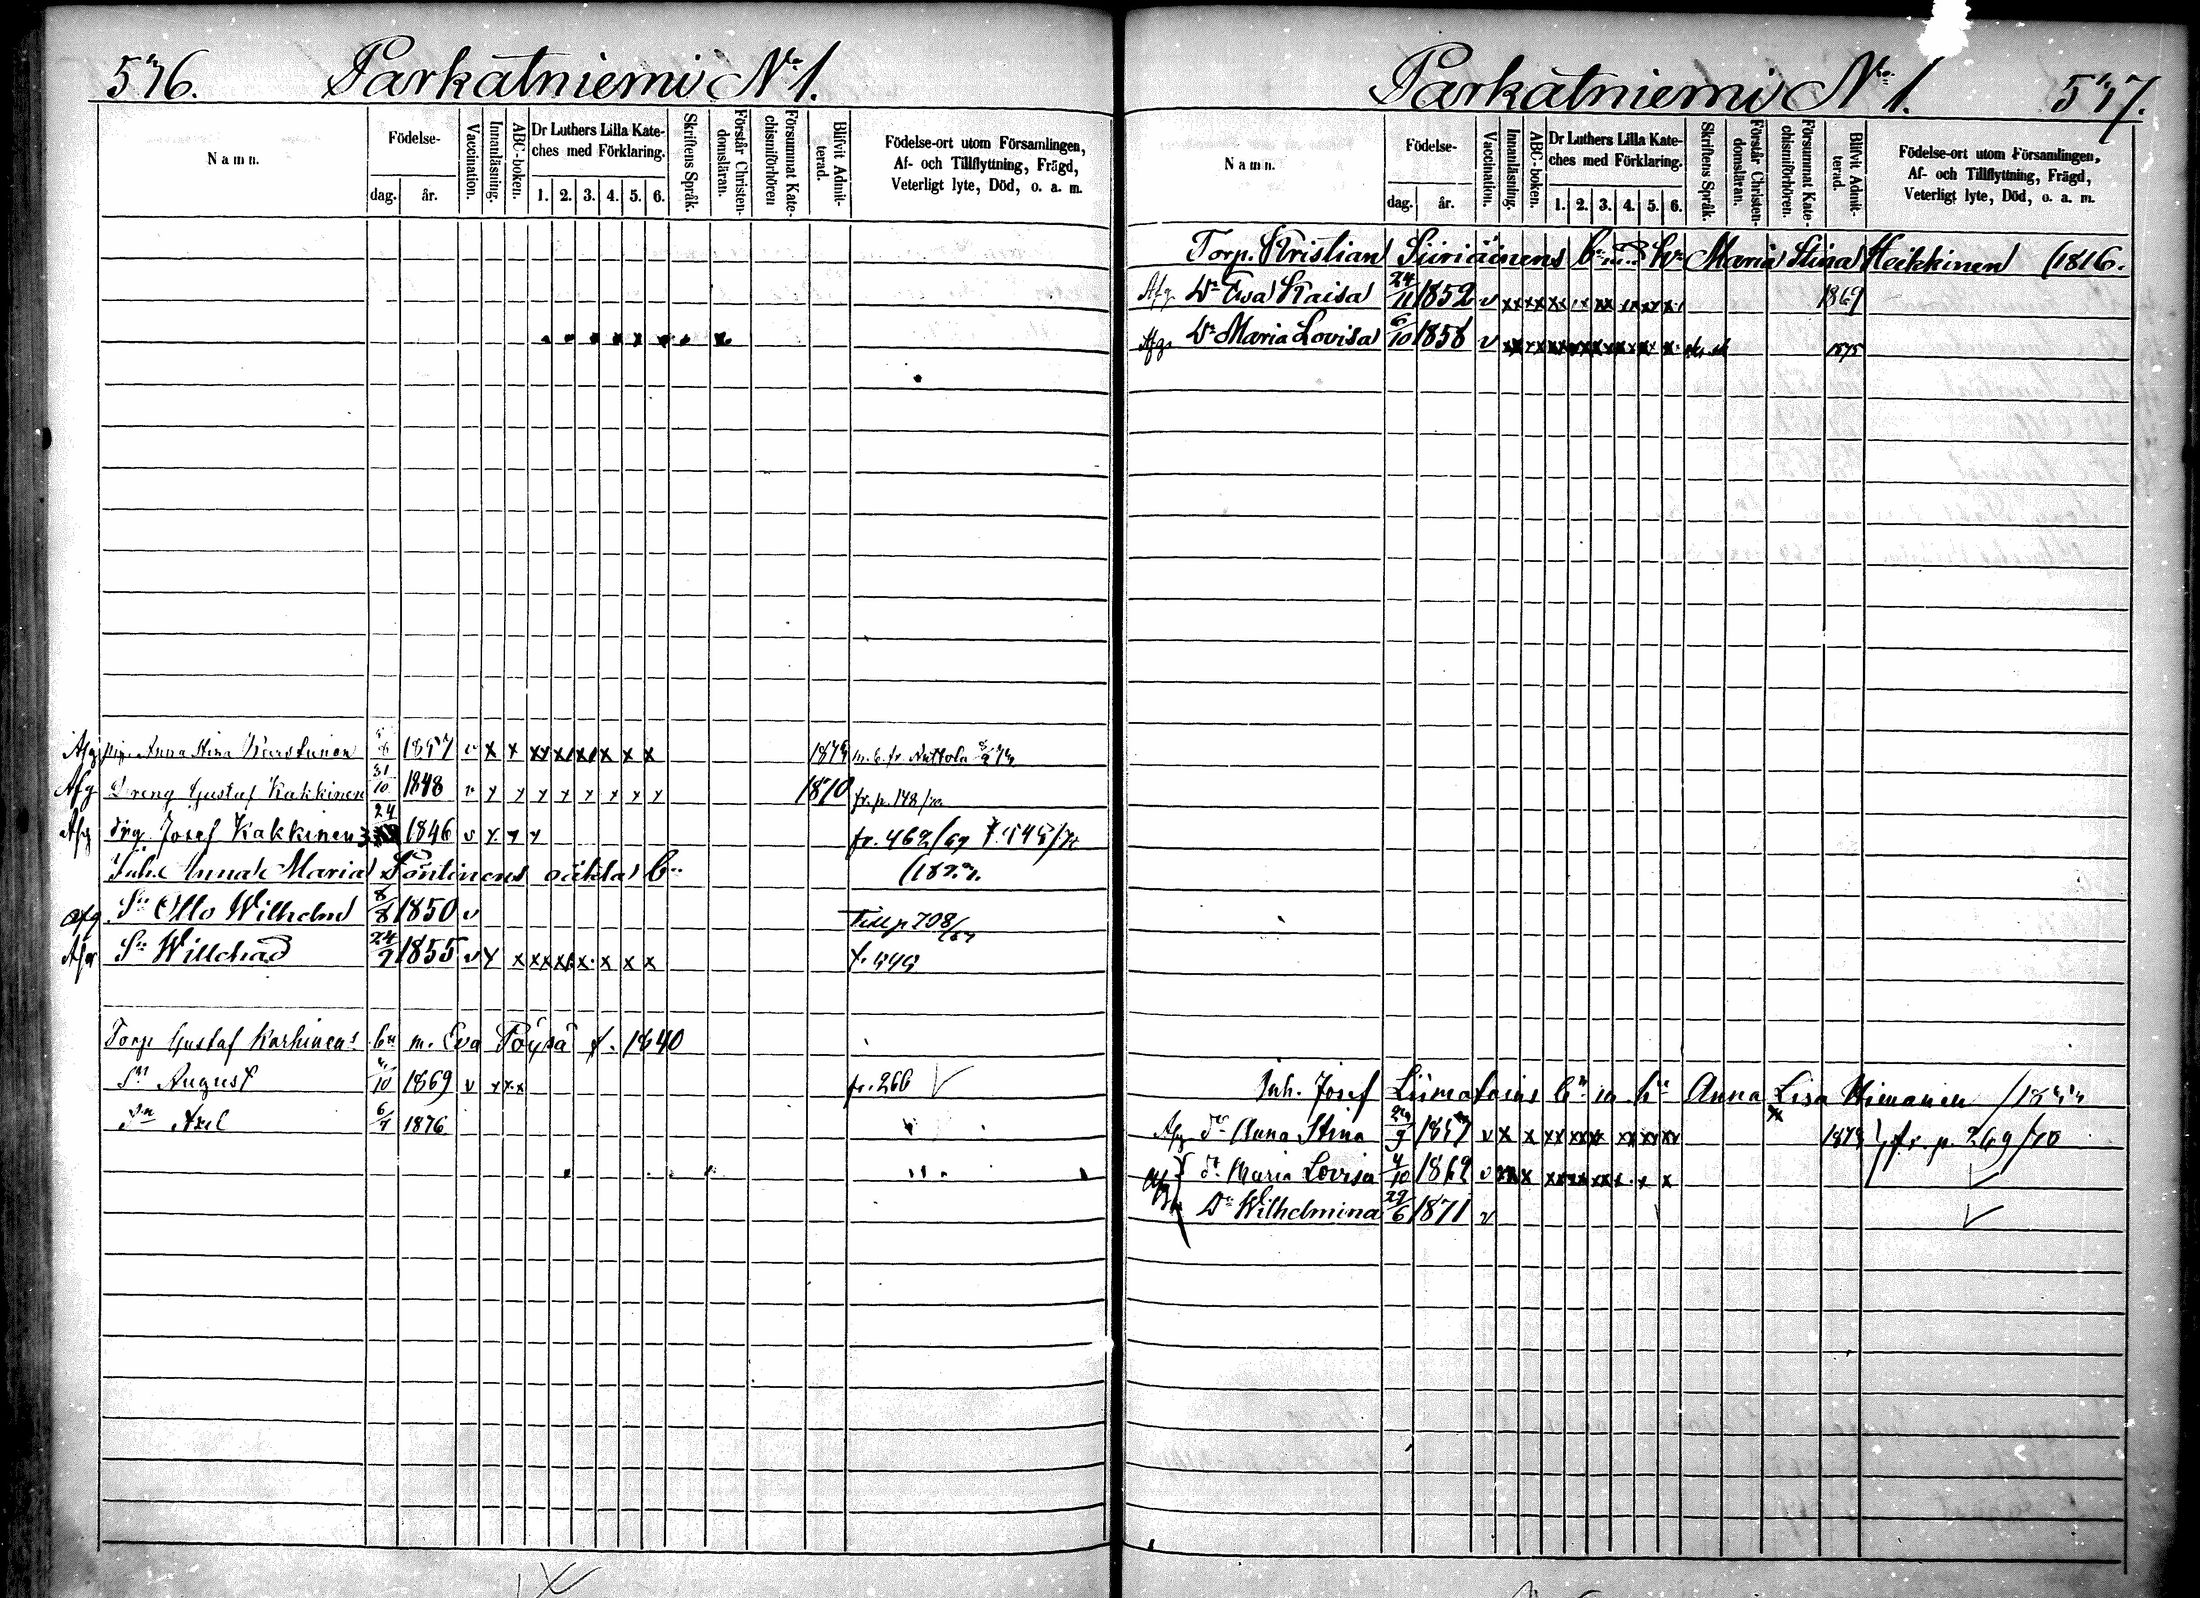 576. Parkatniemi No 1.
Namn.
Födelse-
dag.
år.
Vaccination.
Innanläsning.
ABC-boken.
Dr Luthers Lilla Kate-
ches med Förklaring.
1. 2. 3. 4. 5. 6.
Skriftens Språk.
Förstår Christen-
domsläran.
Försummat Kate-
chismiförhören
Blifvit Admit-
terad.
Födelse-ort utom Församlingen,
Af- och Tillflyttning, Frägd,
Veterligt lyte, Död, o. a. m.
Afg Anna Stina 1857 v x x xx x x x x x
Afg Dreng Gustaf Kakkinen 31/10 1848 v x x x x x x x x 1870 fr. p. 148/70
Afg Drg. Josef Kakkinen 24 1846 v x x x fr. 462/69
Inh. Anna Maria Pöntinens oäkta bn
Afg. Sn Otto Wilhelm 8/8 1850 v Till p 708/
Sn Willehad 24/9 1855 v x x xx x x x x
Torp Gustaf Karhinens bn m. Eva Pöysä f. 1840
Sn August /10 1869 v x x x fr. 266 V
Sn Axel 6/7 1876
Parkatniemi No 1. 577.
Namn.
Födelse-
dag.
år.
Vaccination.
Innanläsning.
ABC-boken.
Dr Luthers Lilla Kate-
ches med Förklaring.
1. 2. 3. 4. 5. 6.
Skriftens Språk.
Förstår Christen-
domsläran.
Försummat Kate-
chismiförhören.
Blifvit Admit-
terad.
Födelse-ort utom Församlingen,
Af- och Tillflyttning, Frägd,
Veterligt lyte, Död, o. a. m.
Torp. Kristian Siiriäinens bn m. hu Maria Stina Heikkinen (1816.
Afg Dr Ewa Kaisa 24/11 1852 v xx xx xx xx xx xx xx x 1869
Afg Dr Maria Lovisa 6/10 1858 v xx xx xx xx xx xx xx x 1875
Inh. Josef Liimatains bn m hu Anna Lisa Himanen
Afg dr Anna Stina /9 1857 v x x xx xx xx xx xx fr. p. 269/70
Afg dr Maria Lovisa 4/10 1869 v xx x xx xx xx x x x V
Dr Wilhelmina 29/6 1871 v V